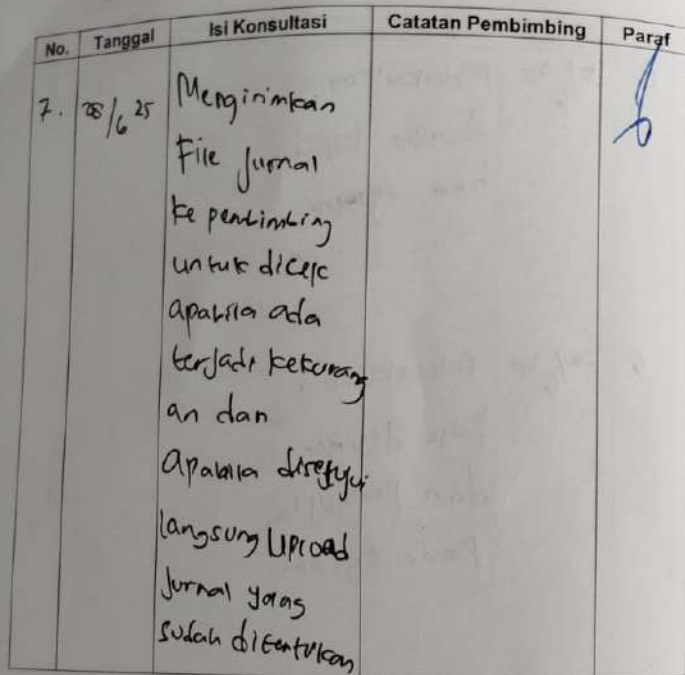 No. Tanggal Isi Konsultasi Catatan Pembimbing Paraf
7. 28/6 25 Mengirimkan
File Jurnal
ke pembimbing
untuk dicek
apabila ada
terjadi kekurang
an dan
apabila disetujui
langsung Upload
Jurnal yang
sudah ditentukan